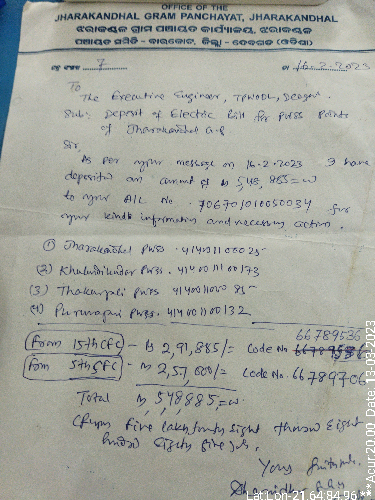 OFFICE OF THE
JHARAKANDHAL GRAM PANCHAYAT, JHARAKANDHAL
ଝରାକନ୍ଧଲ ଗ୍ରାମ ପଞ୍ଚାୟତ କାର୍ଯ୍ୟାଳୟ, ଝରାକନ୍ଧଲ
ପଞ୍ଚାୟତ ସମିତି - ବାରକୋଟ, ଜିଲ୍ଲା - ଦେବଗଡ (ଓଡିଶା)
7 16-2-2023
To
The Executive Engineer, TPWODL, Deogarh.
Sub: Deposit of Electric bill for PWSS Points
of Jharakandhal G.P
Sir,
As per your message on 16-2-2023 I have
deposited an amount of Rs 548,885=00
to your A/c No. 706701010050034 for
your kind information and necessary action.
(1) Jharakandhal PWSS - 414001100025
(2) PWSS. 414001100173
(3) Thakurpali PWSS
(4) PWSS. 414001100132
66789536
From 15th CFC - Rs 2,91,885/= Code No
from 5th SFC - Rs 2,57,000/= Code No. 66789706
Total Rs, 548,885=00
(Rupees five lakh forty eight thousand Eight
hundred Eighty five) only.
Yours faithfully
Lat Lon-21 64 84 96 ***Acur 20.00 Date, 13-03-2023